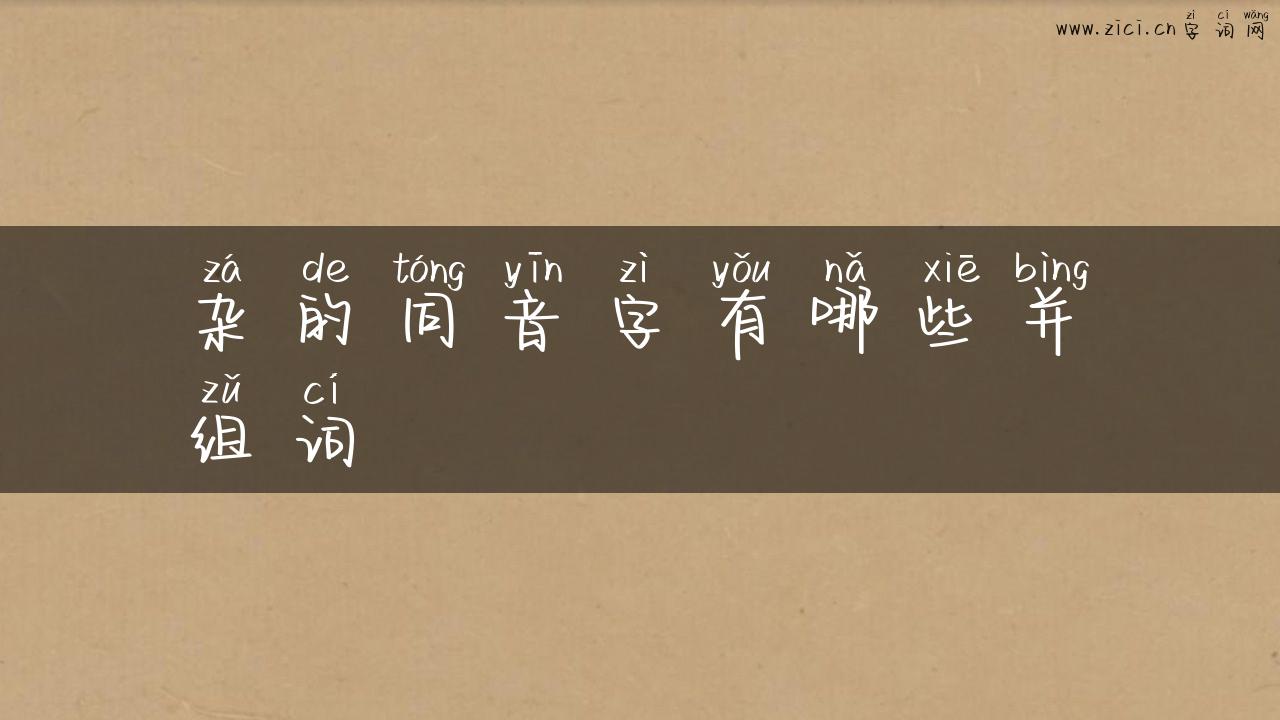 zì cí wǎng
www.zici.cn 字词网
zá de tóng yīn zì yǒu nǎ xiē bìng
杂的同音字有哪些并
zǔ cí
组词